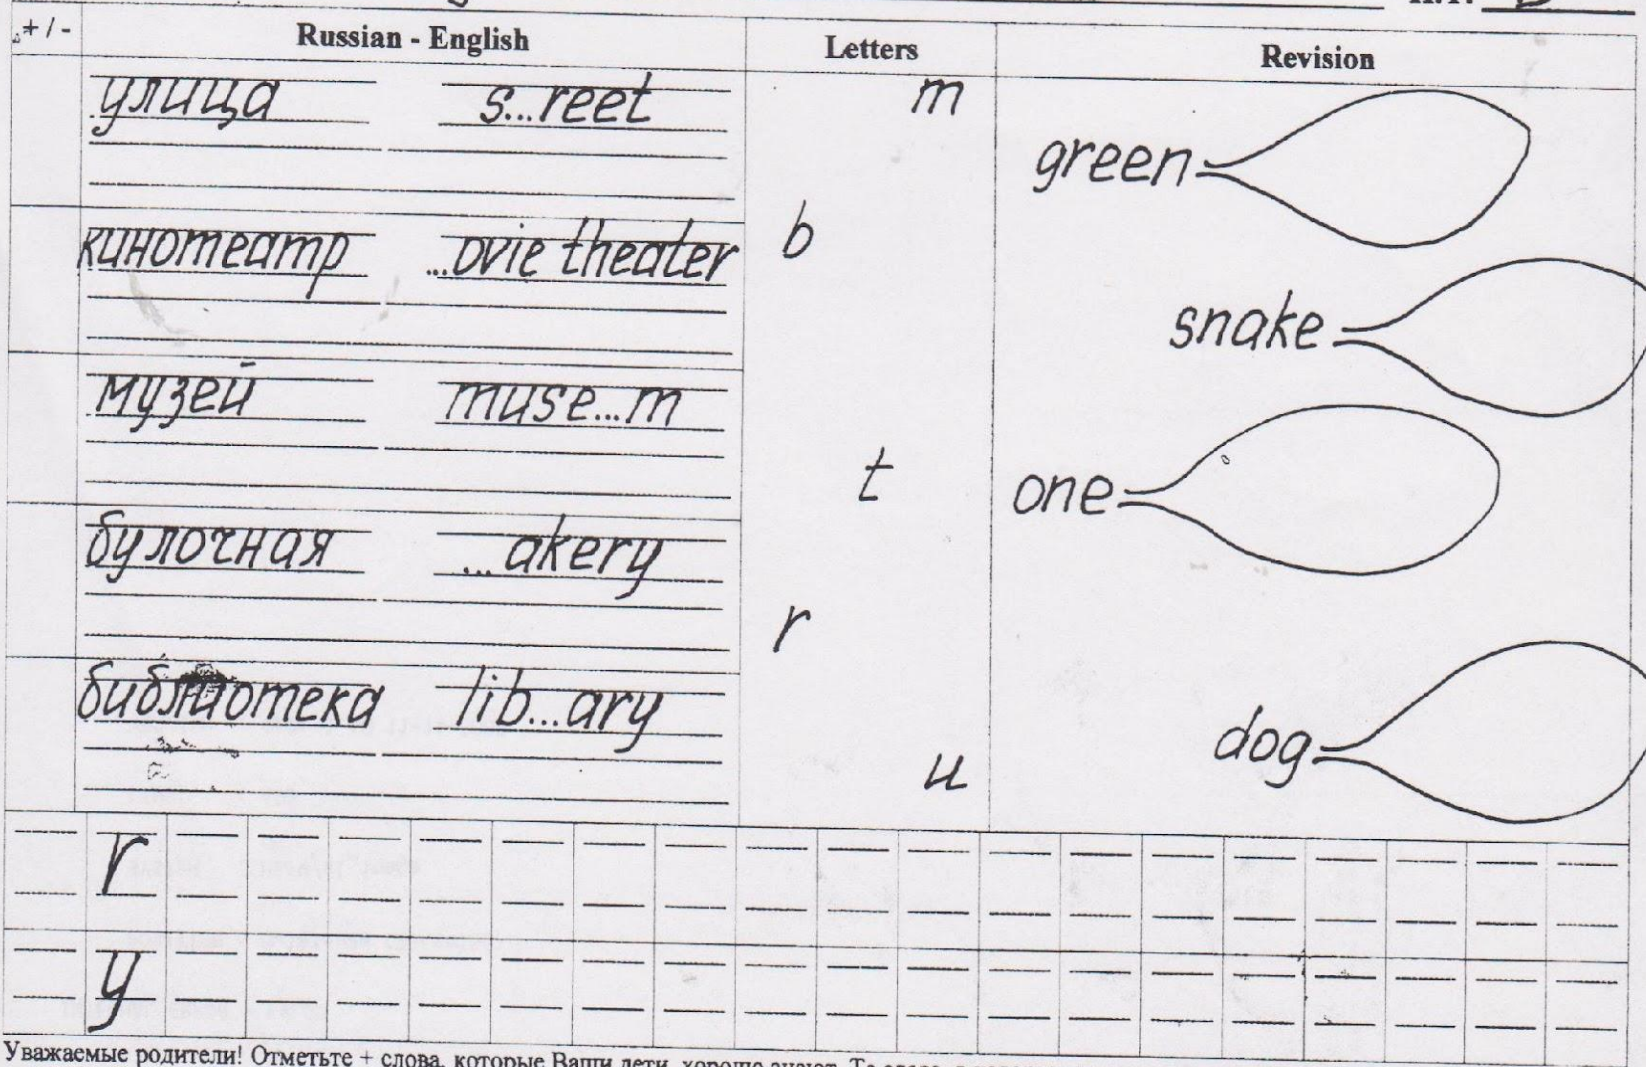 + / - Russian - English Letters Revision
улица s...reet m
green
кинотеатр ...ovie theater b
snake
музей muse...m
t one
булочная ...akery
r
библиотека lib...ary
dog
u
r
y
Уважаемые родители! Отметьте + слова, которые Ваши дети хорошо знают. Те